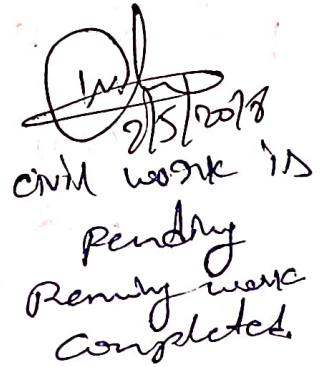 2/5/2018
civil work is
pending
Remuing work
completed.